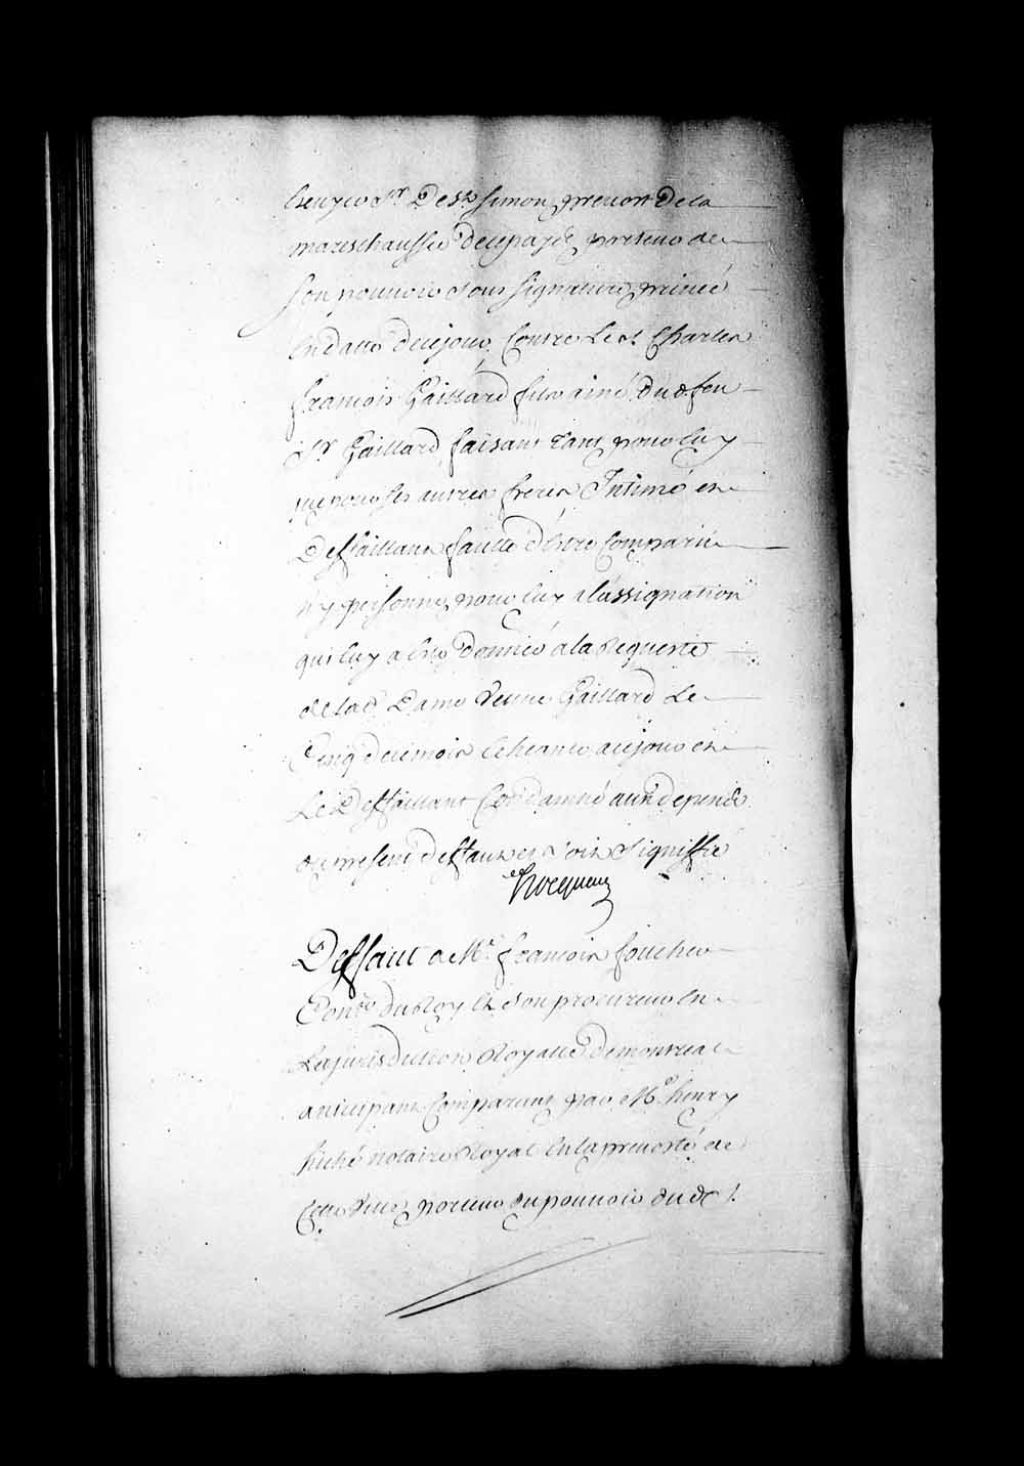 Sr. De St Simon prevost De la
mareschaussée De ce païs porteur de
son pouvoir sous signature privée
En datte De ce jour Contre Le st. Charles
françois Gaillard fils ainé Du d. feu
Sr Gaillard faisant tant pour luy
que pour ses autres freres Intimé et
Deffaillant faulte d'Estre Comparu
ny personne pour luy a l'assignation
qui luy a Esté Donnée a la Requeste
de lad. Dame Veuve Gaillard Le
Cinq de ce mois Echeante a ce jour et
Le Deffaillant Condamné aux depens
du present deffaut et soit signiffié
hocquart
Deffaut a Me. françois foucher
Coner. du Roy Et son procureur En
La jurisdiction Royalle De montreal
anticipant Comparant par Me. henry
hiché notaire Royal En la prevosté de
Cette Ville porteur du pouvoir du d. s.